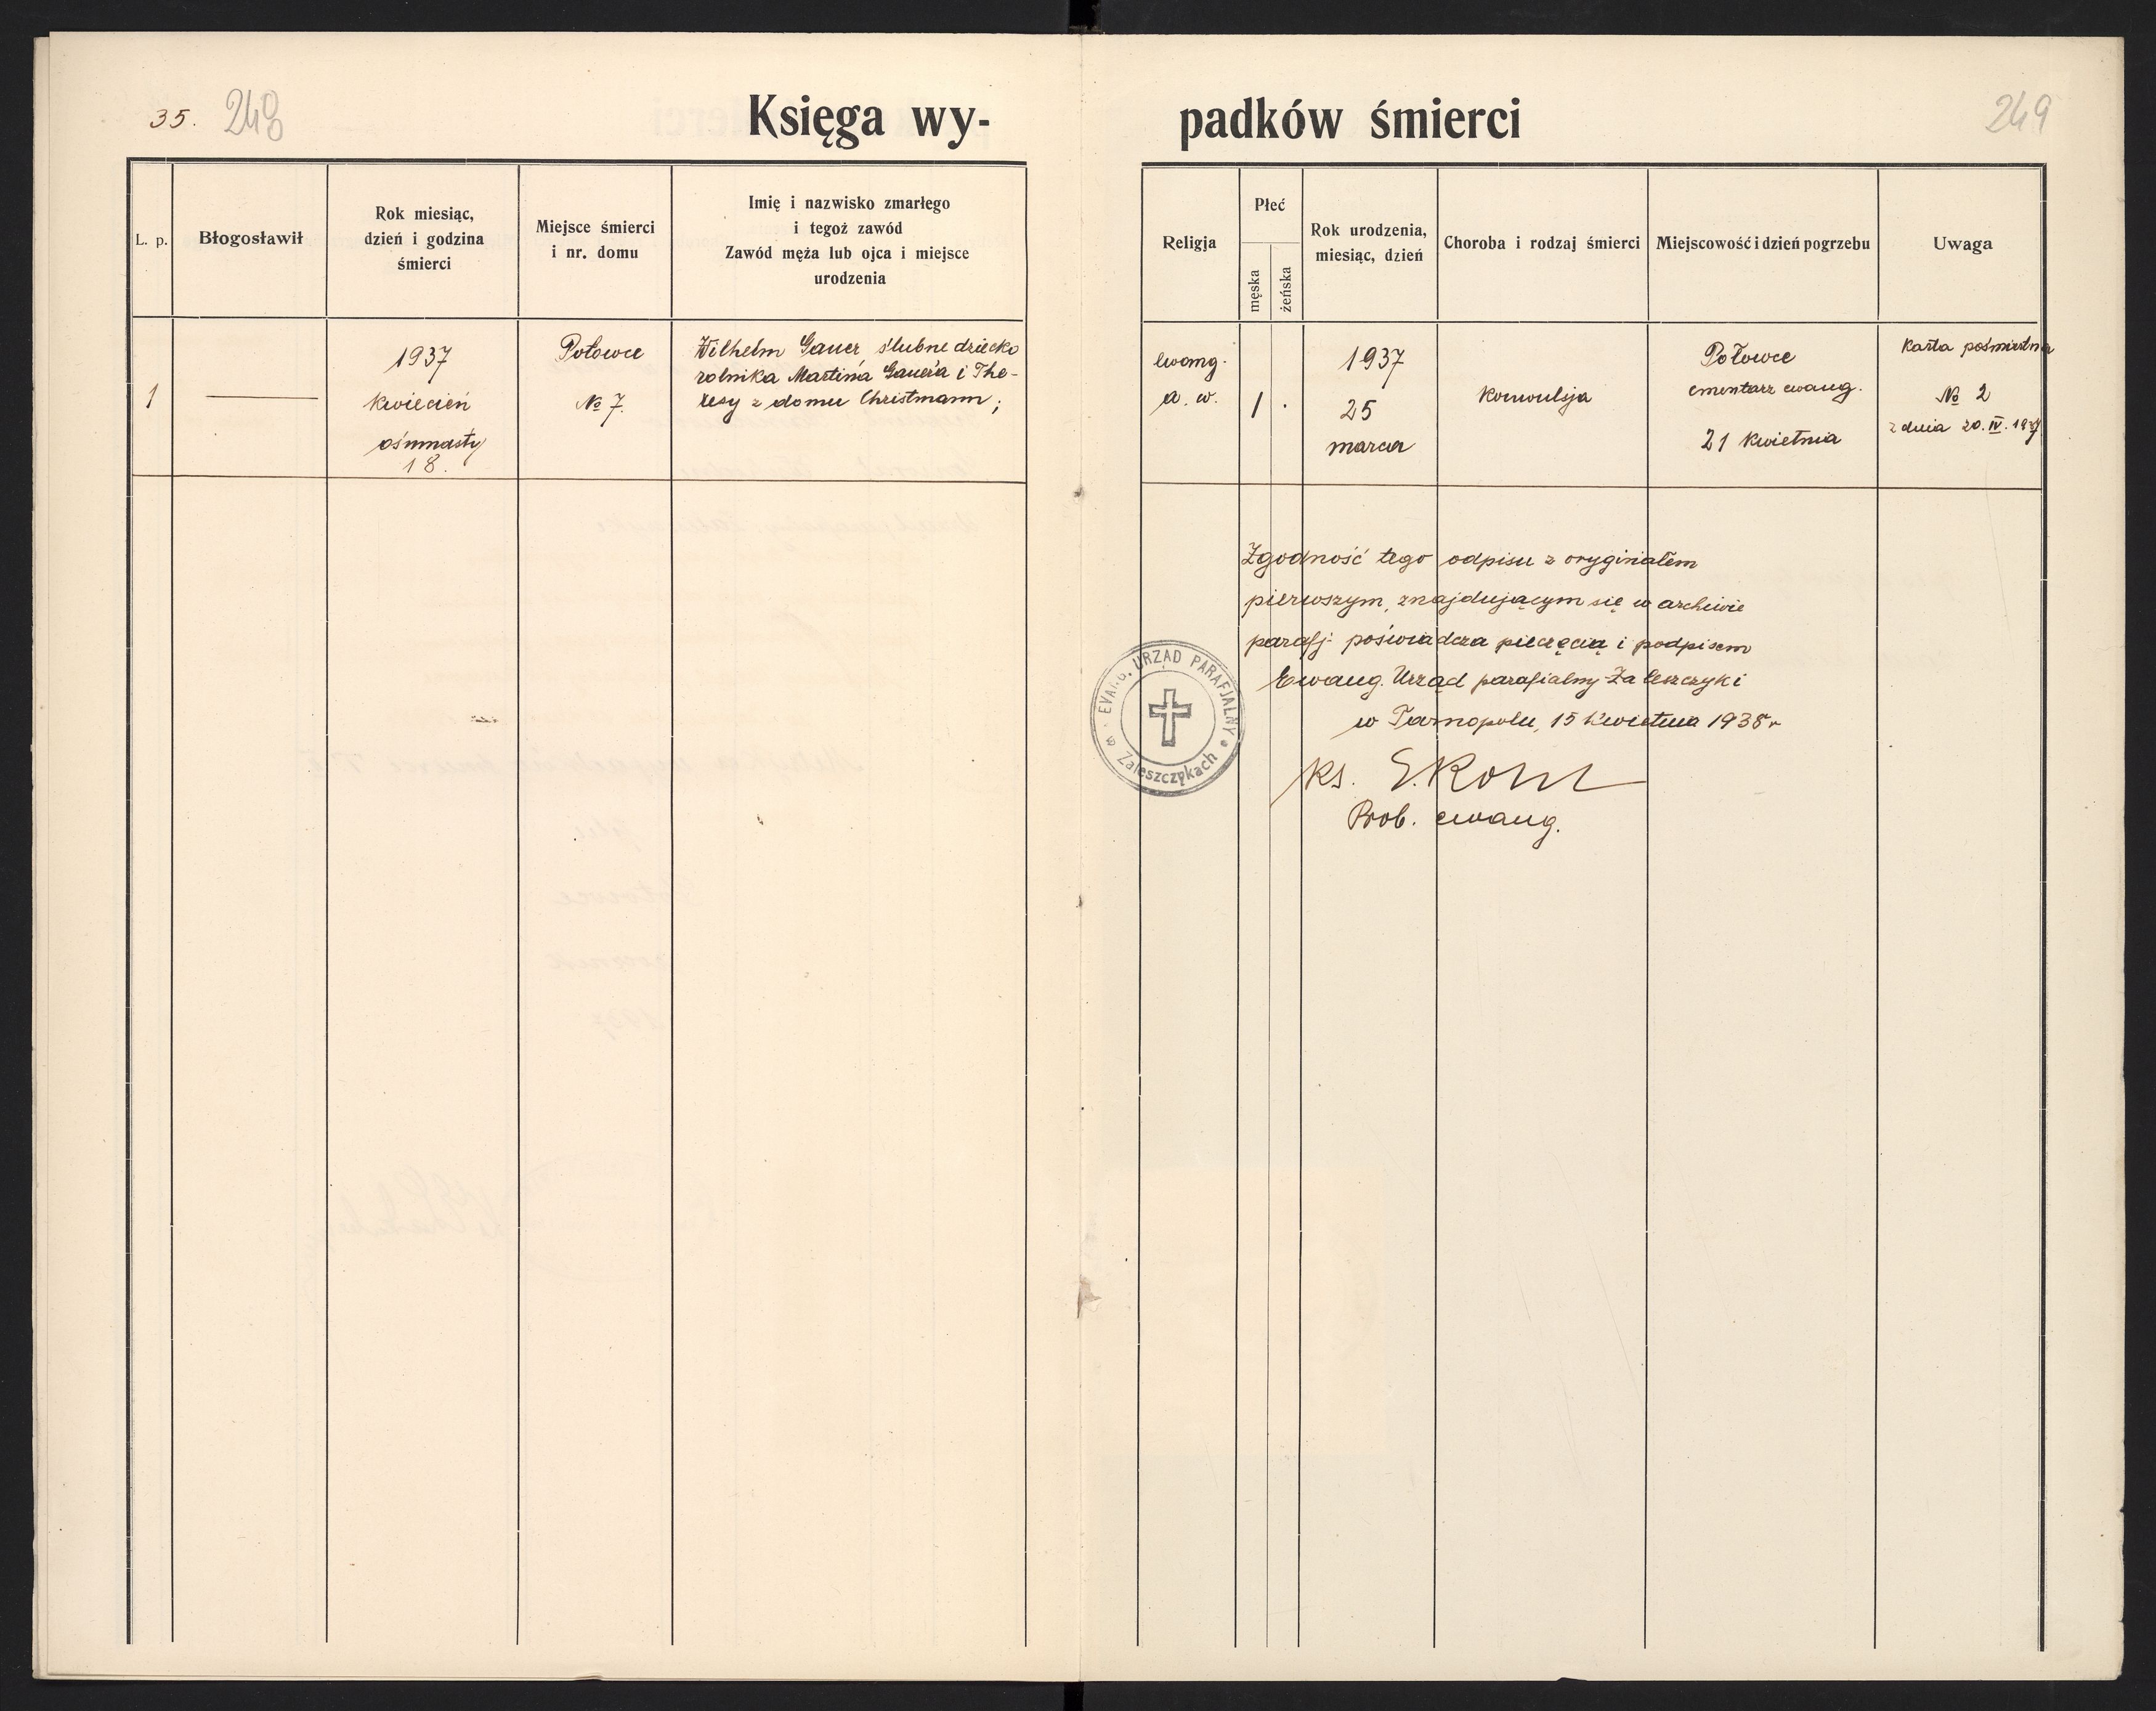 35. 248
Księga wy-
L. p.
Błogosławił
Rok miesiąc,
dzień i godzina
śmierci
Miejsce śmierci
i nr. domu
Imię i nazwisko zmarłego
i tegoż zawód
Zawód męża lub ojca i miejsce
urodzenia
1
1937
kwiecień
ośmnasty
18.
Połowce
№ 7.
Wilhelm Gauer, ślubne dziecko
rolnika Martin'a Gauer'a i The-
resy z domu Christmann;
padków śmierci
249
Religja
Płeć
męska
żeńska
Rok urodzenia,
miesiąc, dzień
Choroba i rodzaj śmierci
Miejscowość i dzień pogrzebu
Uwaga
ewang.
a. w.
1
1937
25
marca
Konwulsja
Połowce
cmentarz ewang.
21 kwietnia
Karta pośmiertna
№ 2
z dnia 20. IV. 1937
Zgodność tego odpisu z oryginałem
pierwszym, znajdującym się w archiwie
parafj. poświadcza pieczęcią i podpisem
Ewang. Urząd parafialny Zaleszczyki
w Tarnopolu, 15 kwietnia 1938 r
EVANG. URZĄD PARAFJALNY
w Zaleszczykach
Ks.
Prob. ewang.